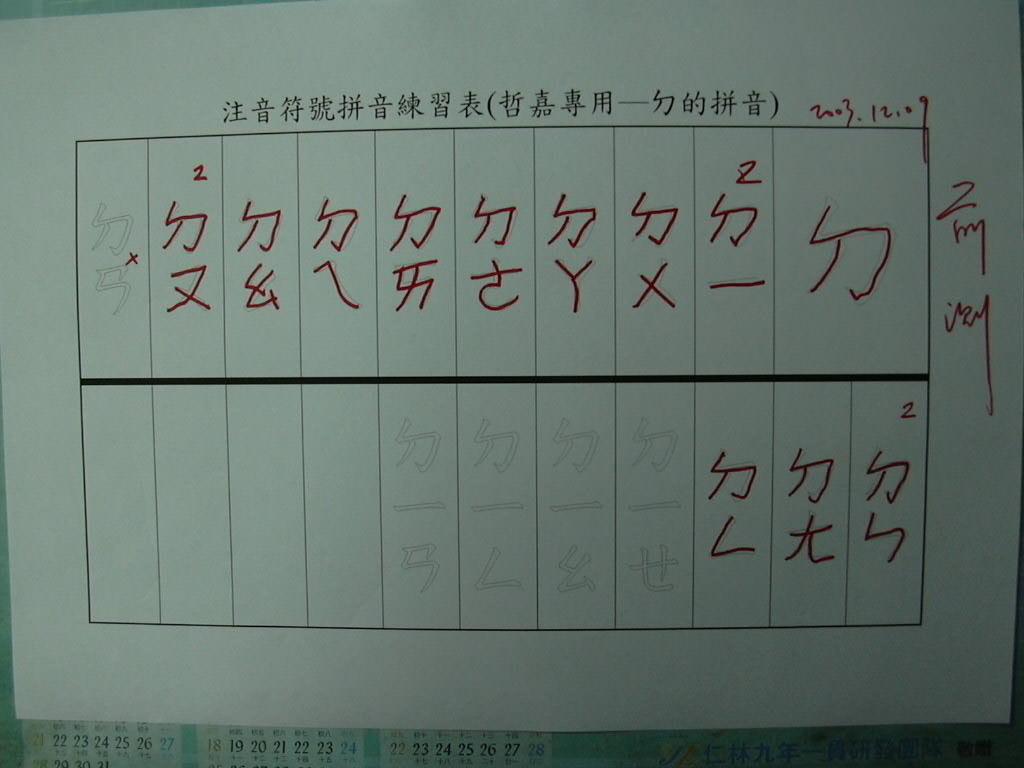 注音符號拼音練習表(哲嘉專用—ㄉ的拼音)
2003.12.09
前測
ㄉ
2
ㄉㄧ
ㄉㄨ
ㄉㄚ
ㄉㄜ
ㄉㄞ
ㄉㄟ
ㄉㄠ
2
ㄉㄡ
ㄉㄢ
x
2
ㄉㄣ
ㄉㄤ
ㄉㄥ
ㄉㄧㄝ
ㄉㄧㄠ
ㄉㄧㄥ
ㄉㄧㄢ
21 22 23 24 25 26 27
28 29 30 31
18 19 20 21 22 23 24
22 23 24 25 26 27 28
仁林九年一貫研發團隊 敬贈